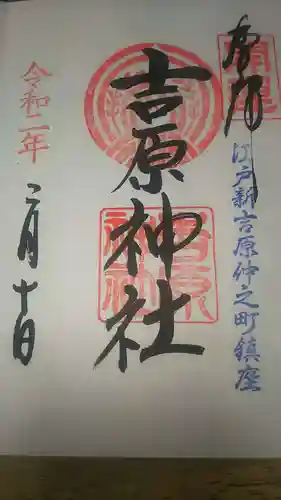 奉拝
江戸新吉原仲之町鎮座
吉原神社
令和二年
二月十日